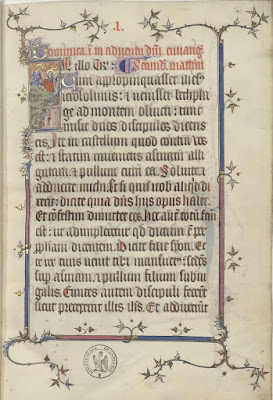 .I.
Dominica .i. in adventu dni. euuang
Illo tr. Secund. matheum
Cum appropinquasset ihc
ierosolimis: & venisset bethpha
ge ad montem oliveti: tunc
misit duos discipulos dicens
eis. Ite in castellum quod contra vos
est: & statim invenietis asinam alli
gatam & pullum cum ea. Solvite &
adducite michi. Et si quis vob aliqd di
xerit: dicite quia dns hiis opus habet.
Et confestim dimittet eos. Hoc aute totu factu
est: ut adimpleretur qd dictum e per
ppham dicentem. Dicite filie syon. Ec
ce rex tuus venit tibi mansuetus: sedens
sup asinam & pullum filium subiu
galis. Euntes autem discipuli fecert
sicut precepit illis ihs. Et adduxerut